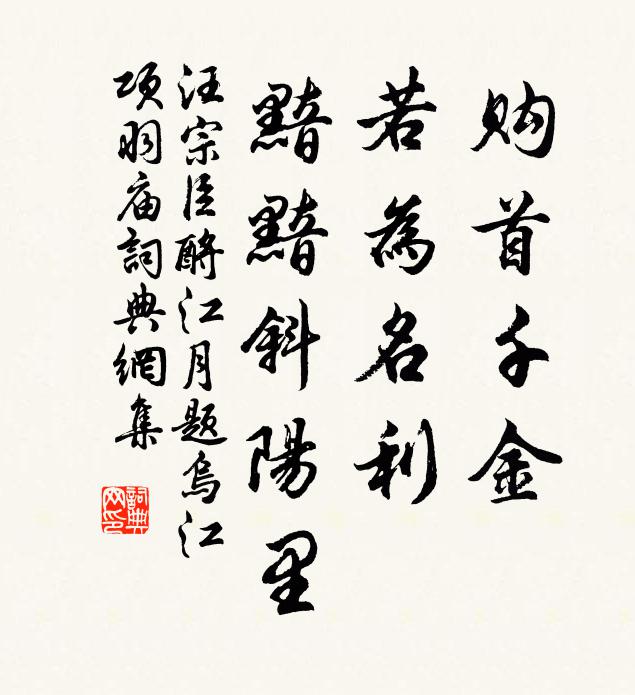 购首千金
若為名利
黯黯斜陽里
汪宗臣酹江月题烏江
项羽庙詞典網集
詞典网印